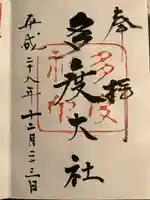 奉拝
多度大社
平成二十八年十二月二十三日